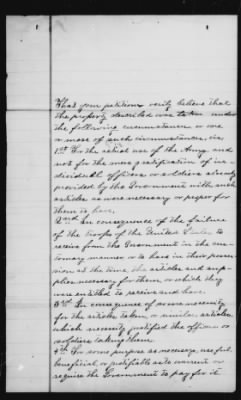 That your petitioner verily believe that
the property described was taken under
the following circumstances or one
or more of such circumstances, viz
1st For the actual use of the Army and
not for the mere gratification of in-
dividual officers or soldiers already
provided by the Government with such
articles as were necessary or proper for
them to have.
2nd In consequence of the failure
of the troops of the United States to
receive from the Government in the cus-
tomary manner or to have in their posses-
sion at the time the articles and sup-
plies necessary for them, or which they
were entitled to receive and have.
3rd In consequence of some necessity
for the articles taken, or similar articles,
which necessity justified the officers or
soldiers taking them.
4th For some purpose so necessary, useful,
beneficial or justifiable as to warrant or
require the Government to pay for it